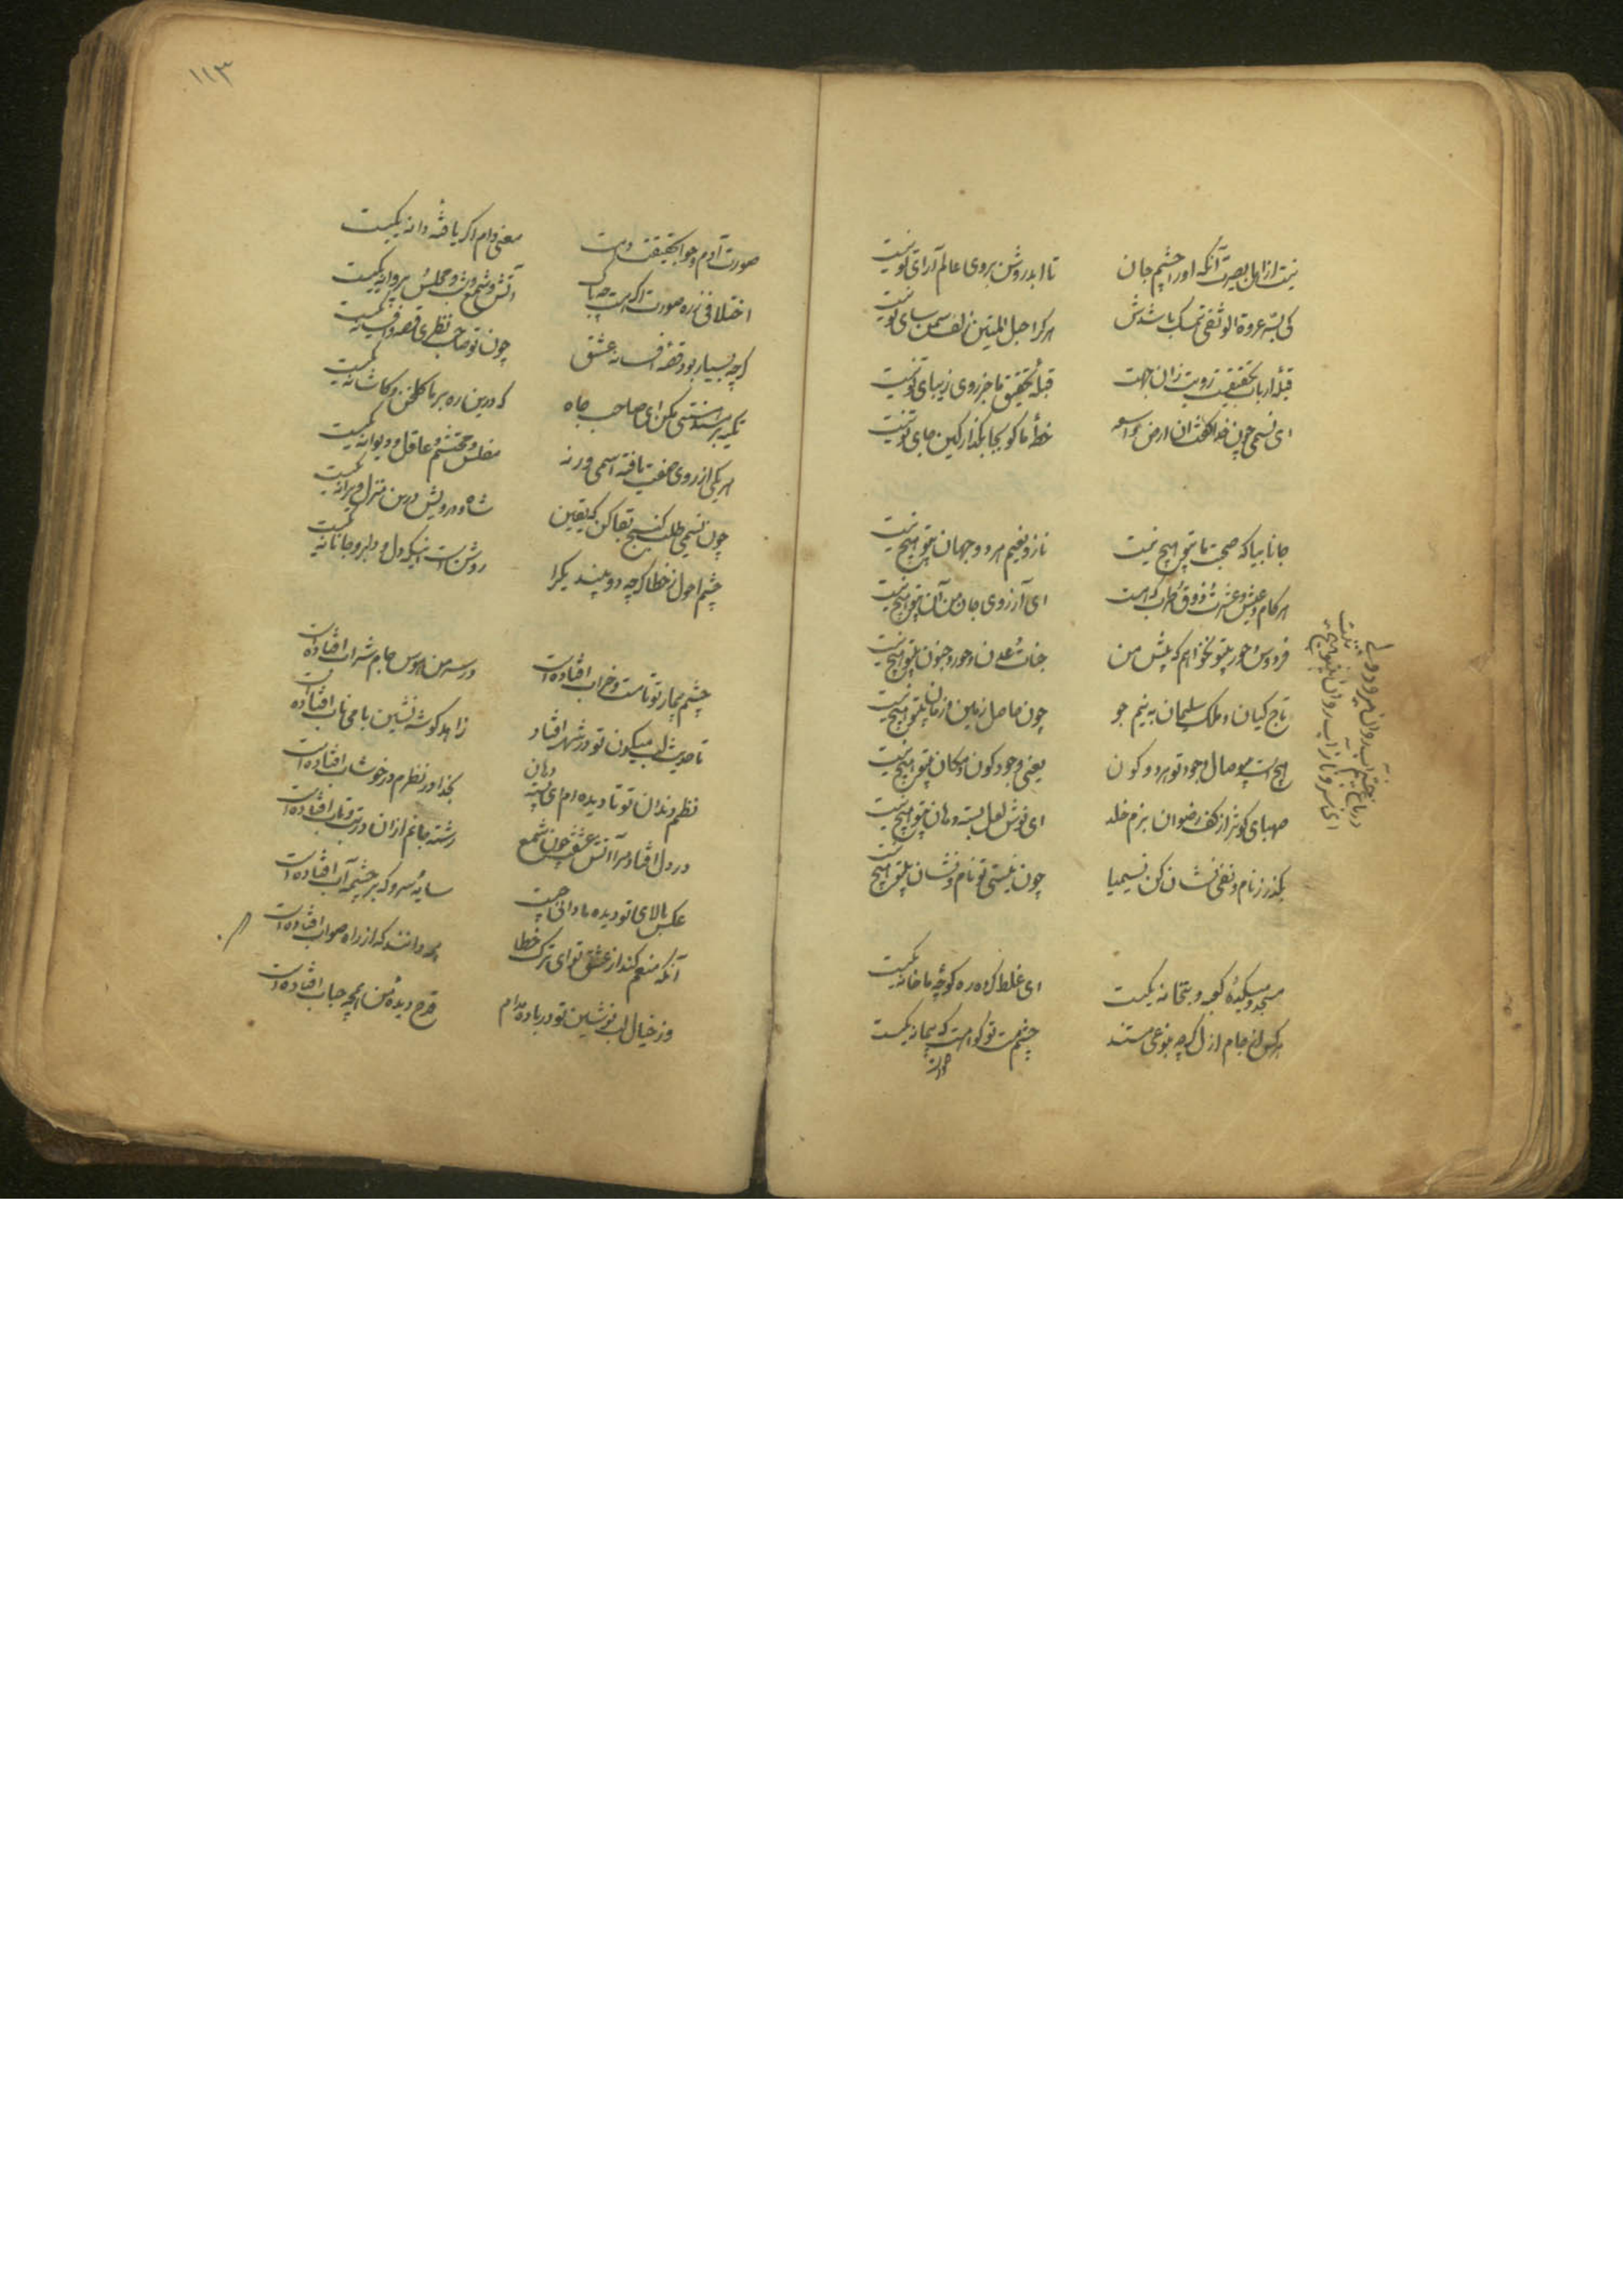 نیست از اهل بصیرت آنکه اورا چشم جان
تا ابد روشن بروی عالم آرای تو نیست
کی بسر عروة الوثقی تمسک باشدش
هرکرا حبل المتین زلف سمن سای تو نیست
قبلهٔ ارباب تحقیقست رویت زان جهت
قبلهٔ تحقیق ما جز روی زیبای تو نیست
ای نسیمی چون خدا گفت ان ارضی واسعه
خطهٔ باکو بجا بگذار کین جای تو نیست
جانا بیا که صحبت ما بیتو هیچ نیست
ناز و نعیم هر دو جهان بیتو هیچ نیست
هر کام و عیش و عشرت و ذوق و طرب که هست
ای آرزوی جان من آن بیتو هیچ نیست
فردوس و حور بیتو نخواهم که پیش من
جنات عدن و حور و جنون بیتو هیچ نیست
تاج کیان و ملک سلیمان به نیم جو
چون حاصل زمین و زمان بیتو هیچ نیست
هیچ است بی وصال وجود تو هر دو کون
یعنی وجود کون و مکان بیتو هیچ نیست
صهبای کوثر از کف رضوان ببزم خلد
ای نوش لعل بسته دهان بیتو هیچ نیست
بگذر ز نام و نفی نشان کن نسیمیا
چون نیستی تو نام و نشان بیتو هیچ نیست
در باغ جنت آب روان میرود ولی
ای سرو ناز آب روان بیتو هیچ نیست
مسجد و میکده و کعبه و بتخانه یکیست
ای غلط کرده ره کوچهٔ ما خانه یکیست
هرکس از جام ازل گرچه بنوعی مستند
چشم مست تو گواهست که پیمانه یکیست
صورت
۱۱۳
صورت آدم و حوا بحقیقت دامست
معنی دام اگر یافتهٔ دانه یکیست
اختلافی ز ره صورت اگر هست چه باک
آتش و شمع و شب و مجلس و پروانه یکیست
گرچه بسیار بود قصه افسانه عشق
چون تو صاحب نظری قصه و افسانه یکیست
تکیه بر مسند هستی مکن ای صاحب جاه
که درین ره بر ما گلخن و کاشانه یکیست
هر یکی از روی صفت یافته اسمی ورنه
مفلس و محتشم و عاقل و دیوانه یکیست
چون نسیمی طلب گنج بقا کن که یقین
شاه و درویش درین منزل ویرانه یکیست
چشم احول ز خطا گرچه دو بیند یکرا
روشن است اینکه دل و دلبر و جانانه یکیست
چشم بیمار تو تا مست و خراب افتادست
در سر من هوس جام شراب افتادست
تا حدیث لب میگون تو در شهر افتاد
زاهد گوشه نشین با می ناب افتادست
نظم دندان تو تا دیده ام ای پسته دهان
بخدا در نظرم در خوشاب افتادست
در دل افتاد مرا آتش عشقت چون شمع
رشته جانم از آن در تب و تاب افتادست
عکس بالای تو در دیده ما دانی چیست
سایهٔ سرو که بر چشمه آب افتادست
آنکه منعم کند از عشق تو ای ترک خطا
همه دانند که از راه صواب افتادست
وز خیال لب نوشین تو در باده مدام
قدح دیدهٔ من همچو حباب افتادست